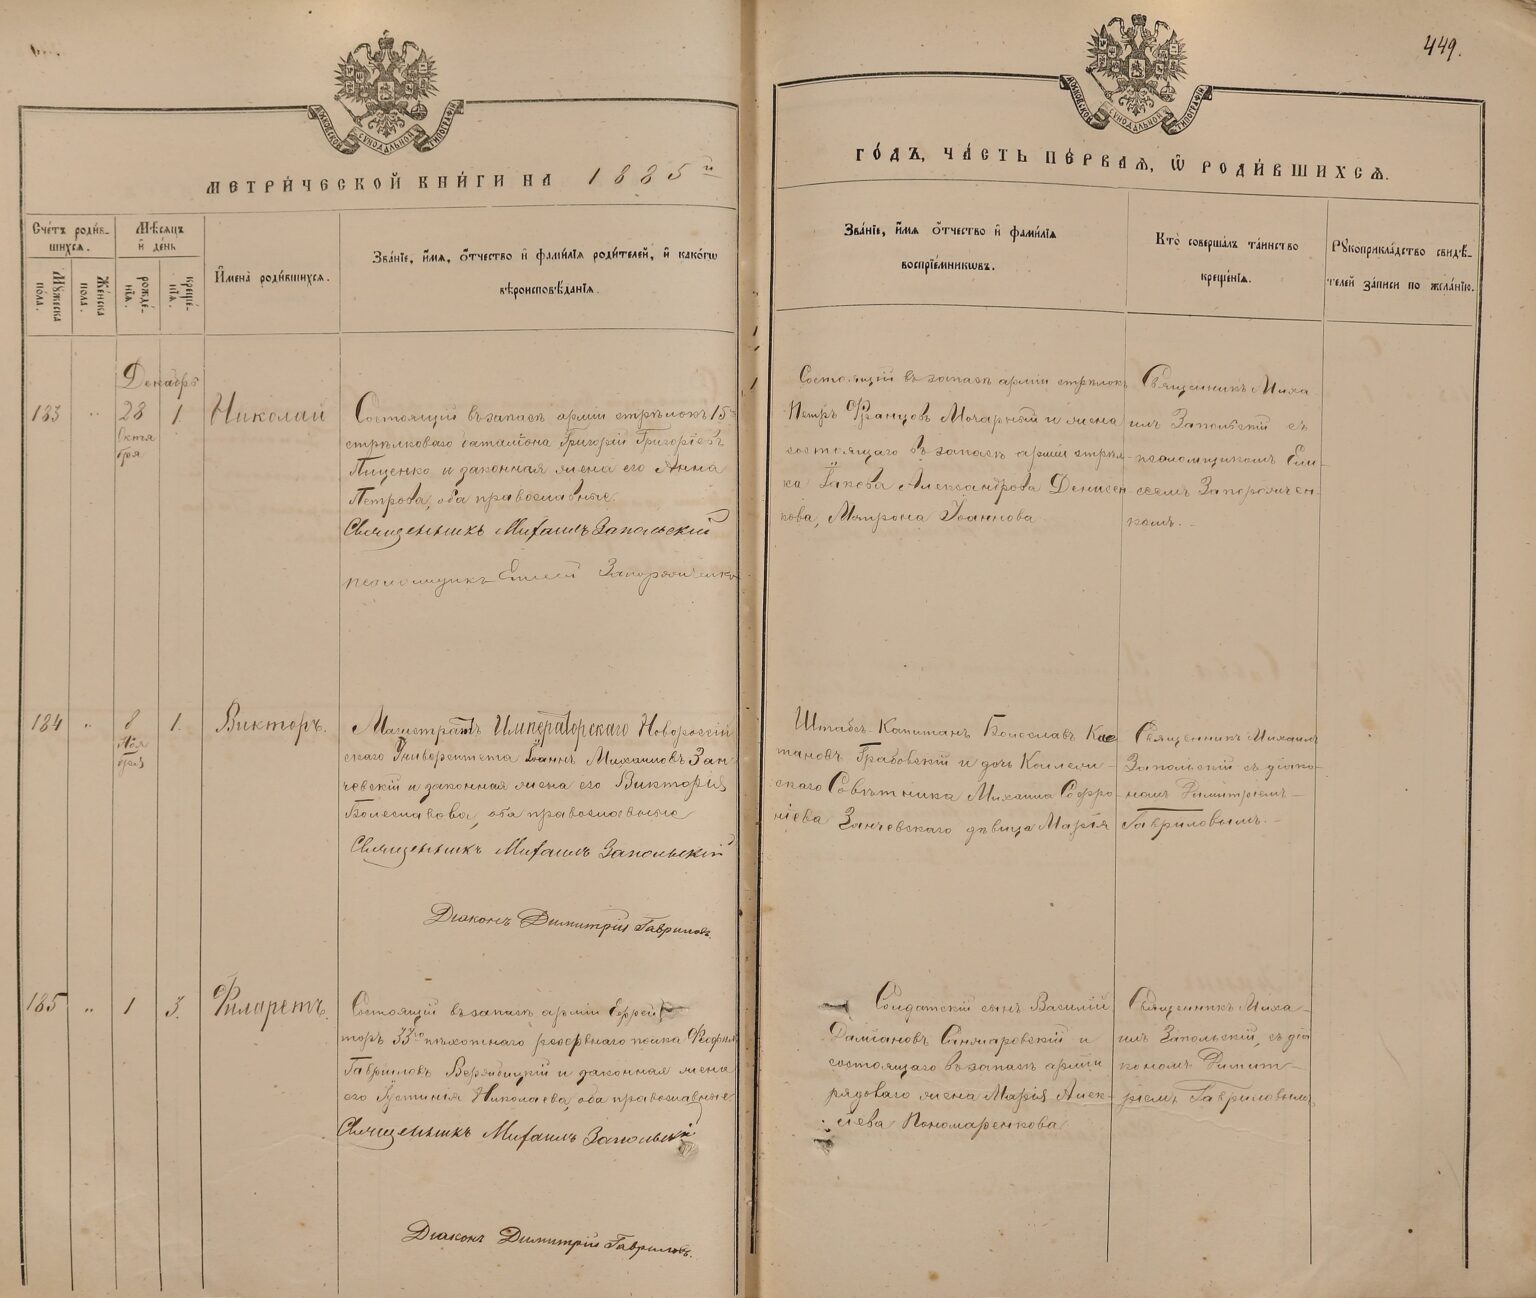 449.
МОСКОВСКОЙ СѴНОДАЛЬНОЙ ТИПОГРАФІИ
МОСКОВСКОЙ СѴНОДАЛЬНОЙ ТИПОГРАФІИ
МЕТРИ́ЧЕСКОЙ КНИ́ГИ НА 1885й
ГО́ДЪ, ЧА́СТЬ ПЕ́РВАѦ, Ѡ҆ РОДИ́ВШИХСѦ.
Сче́тъ роди́в-
шихсѧ.
Мꙋ́жеска по́ла.
Же́нска по́ла.
Мѣ́сѧцъ
и҆ де́нь
рожде́-
нїѧ.
креще́-
нїѧ.
И҆мена̀ роди́вшихсѧ.
Зва́нїе, и҆́мѧ, ѻ҆́тчество и҆ фами́лїѧ роди́телей, и҆ како́гѡ
вѣроисповѣ́данїѧ.
Зва́нїе, и҆́мѧ ѻ҆́тчество и҆ фами́лїѧ
воспрїе́мникѡвъ.
Кто̀ соверша́лъ та́инство
креще́нїѧ.
Рꙋкоприкла́дство свидѣ́-
телей за́писи по жела́нїю.
Декабрь
183 " 28 1. Николай
Октя
бря
Состоящій въ запасѣ арміи стрѣлокъ 15го
стрѣлковаго баталіона Григорій Григоріевъ
Пиценко и законная жена его Анна
Петрова, оба православные.
Священникъ Михаилъ Запольскій
псаломщикъ Елисей Запорожченко
Состоящій въ запасѣ арміи стрѣлокъ
Петръ Францовъ Мочарный и жена
состоящаго въ запасѣ арміи стрѣл-
ка Іакова Александрова Денисен
кова, Матрона Іоаннова
Священникъ Миха
илъ Запольскій съ
псаломщикомъ Ели-
сеемъ Запорожчен-
комъ.
184 " 8 1. Викторъ.
Ноя
бря
Магистрантъ Императорскаго Новороссій
скаго Университета Іоаннъ Михаиловъ Зан-
чевскій и законная жена его Викторія
Болеславова, оба православные
Священникъ Михаилъ Запольскій
Діаконъ Димитрій Гавриловъ.
Штабсъ Капитанъ Болеславъ Кае
тановъ Грабовскій и дочь Коллеж-
скаго Совѣтника Михаила Софро-
ніева Занчевскаго дѣвица Марія
Священникъ Михаилъ
Запольскій съ діако-
номъ Димитріемъ
Гавриловымъ.
185 " 1 3. Филаретъ.
Состоящій въ запасѣ арміи Ефрей
торъ 33го пѣхотнаго резервнаго полка
Гавриловъ Вержбицкій и законная жена
его Іустинія Николаева, оба православные
Священникъ Михаилъ Запольскій
Діаконъ Димитрій Гавриловъ.
Солдатскій сынъ Василій
Даміановъ Санжаровскій и
состоящаго въ запасѣ арміи
рядоваго жена Марія Алек-
сіева Пономаренкова
Священникъ Миха-
илъ Запольскій, съ діа
кономъ Димит-
ріемъ Гавриловымъ